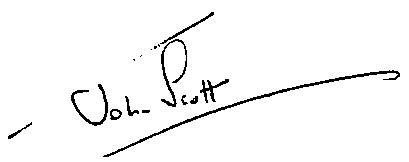 John Scott